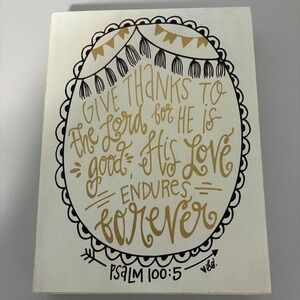 GIVE THANKS TO
the Lord for HE is
good; His Love
ENDURES
forever
PSALM 100:5